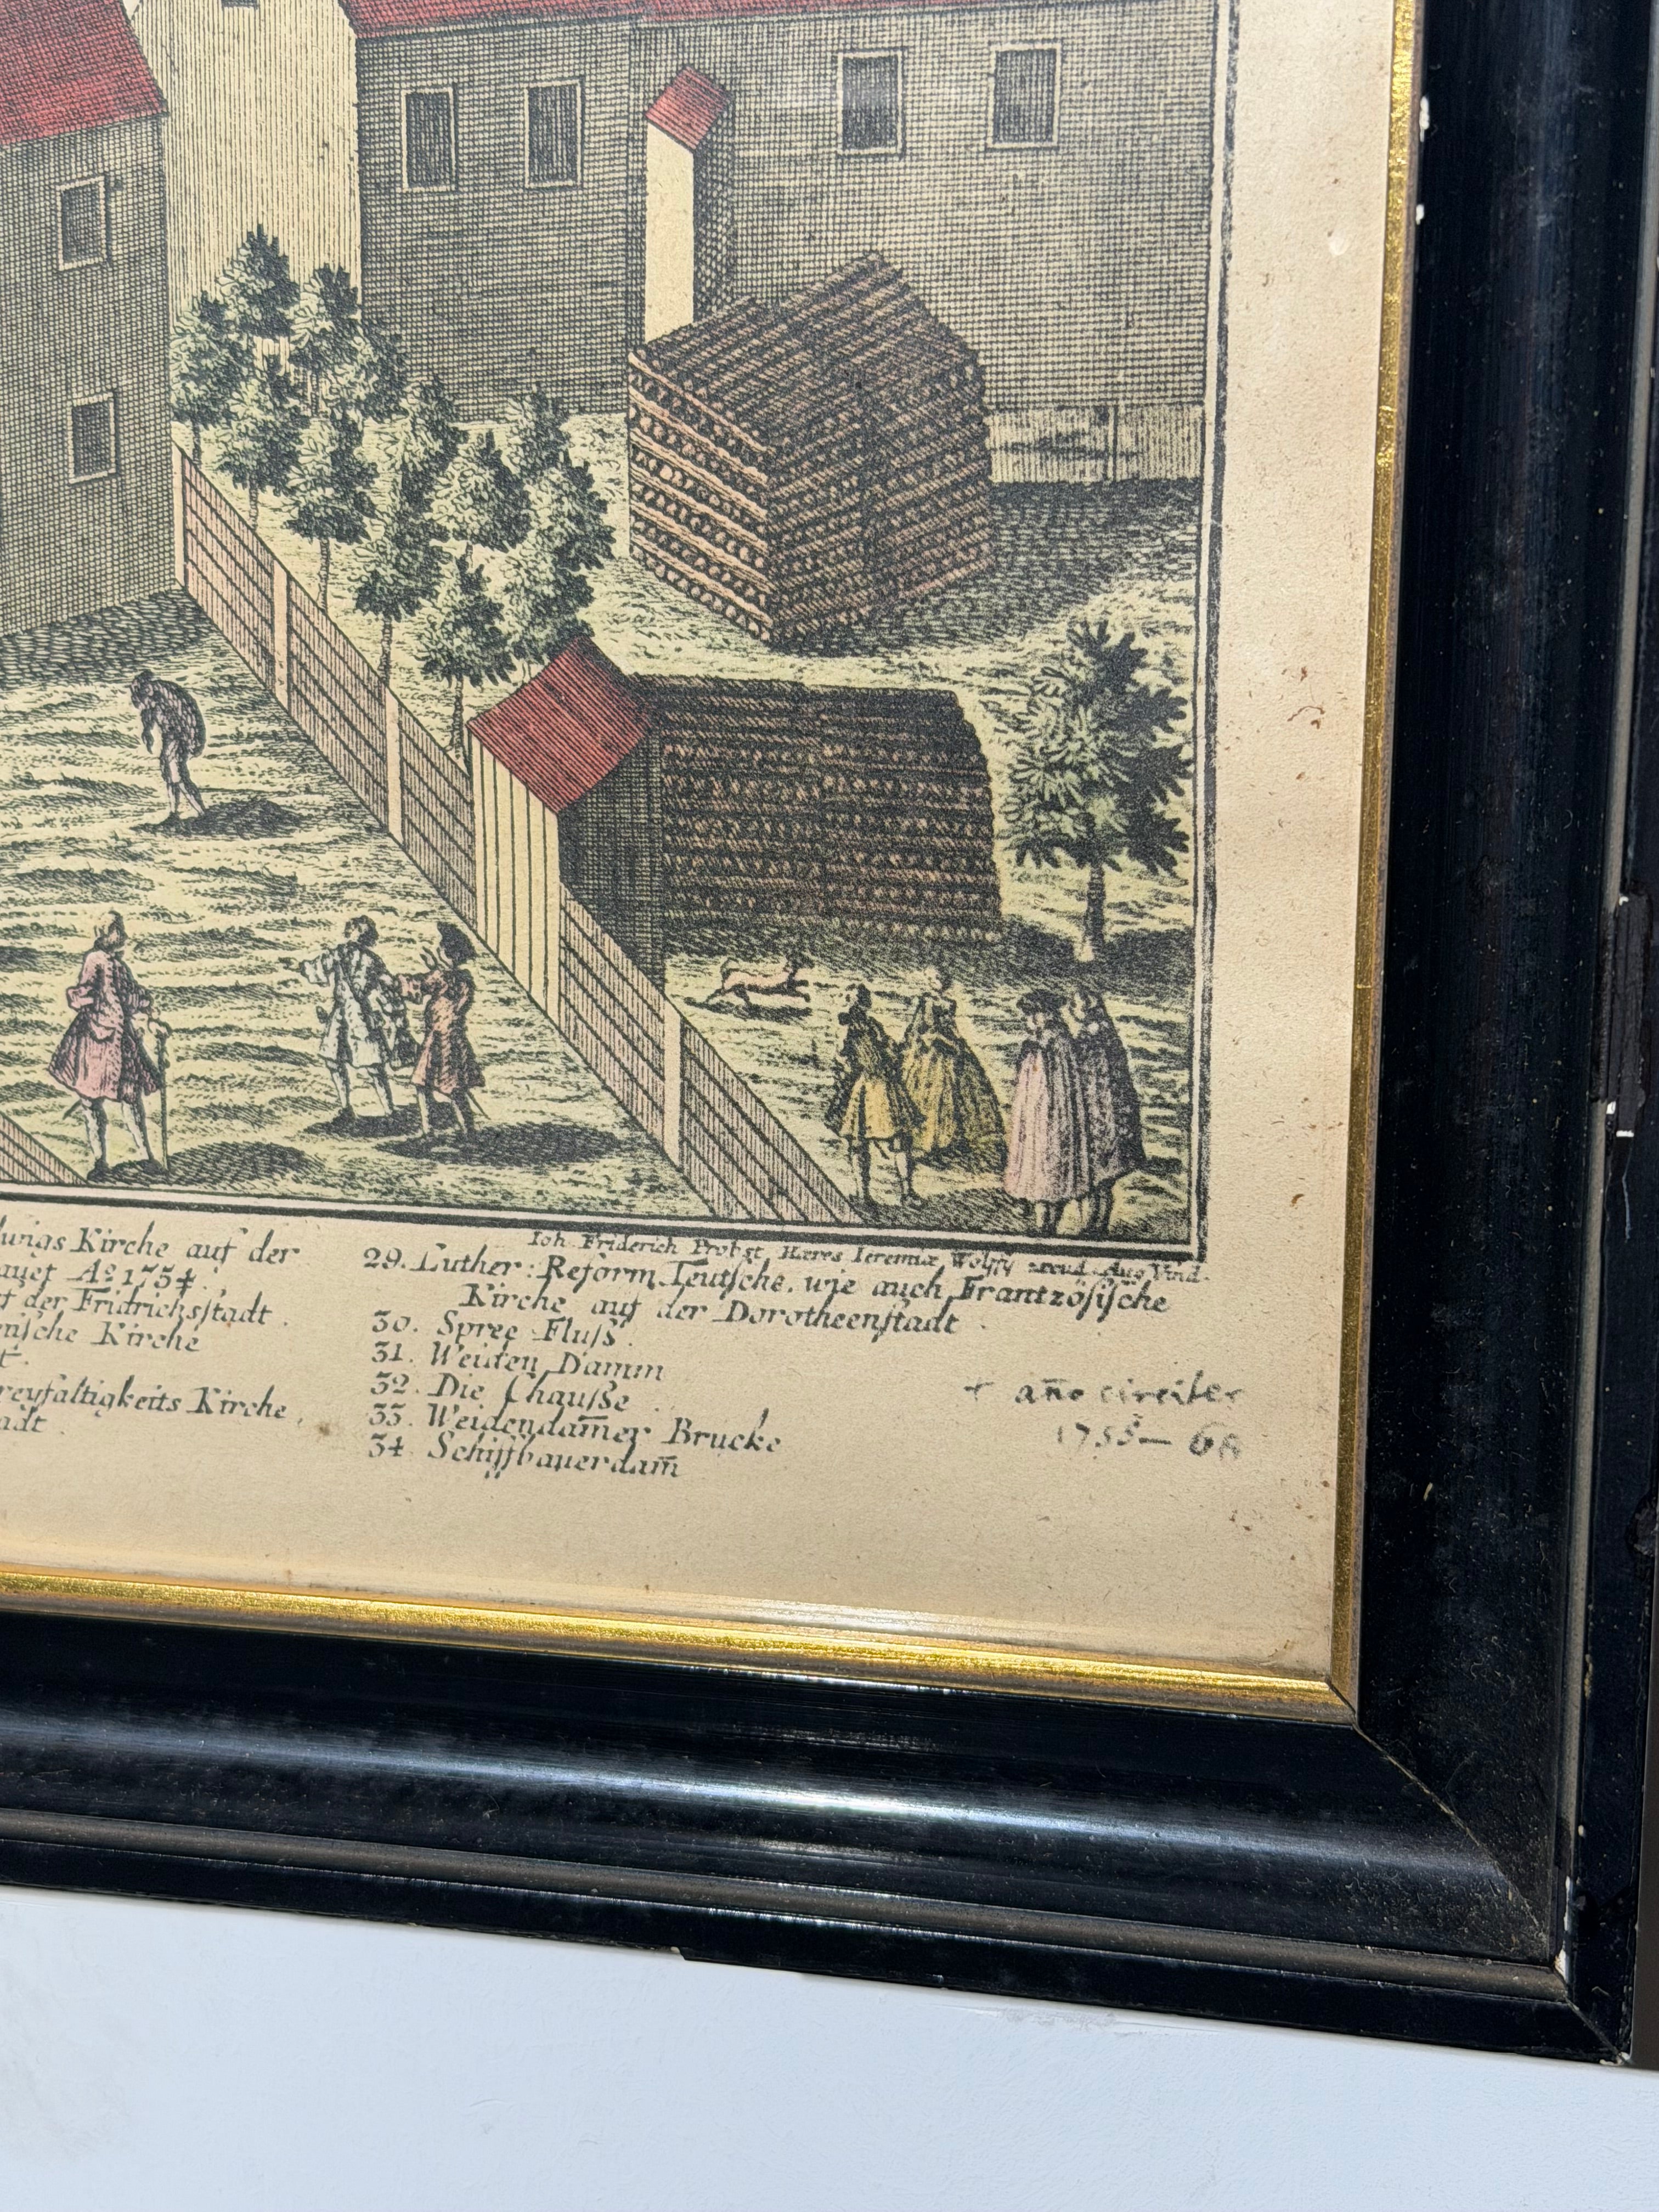 Ioh. Friderich Probst, Haeres Ieremiae Wolffy excud. Aug. Vind.
Kirche auf der
Aº 1754.
der Fridrichsstadt.
Kirche
Kirche,
29. Luther: Reform. Teutsche, wie auch Frantzösische
Kirche auf der Dorotheenstadt
30. Spree Fluſs.
31. Weiden Damm
32. Die Chauſse
33. Weidendam̄er Brucke
34 Schiffbauerdam̄
+ an̄o circiter
1755 — 60